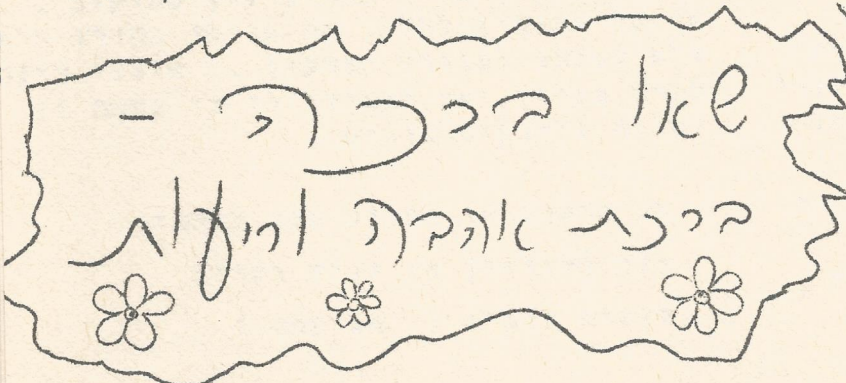 שאו ברכה -
ברכת אהבה וריעות